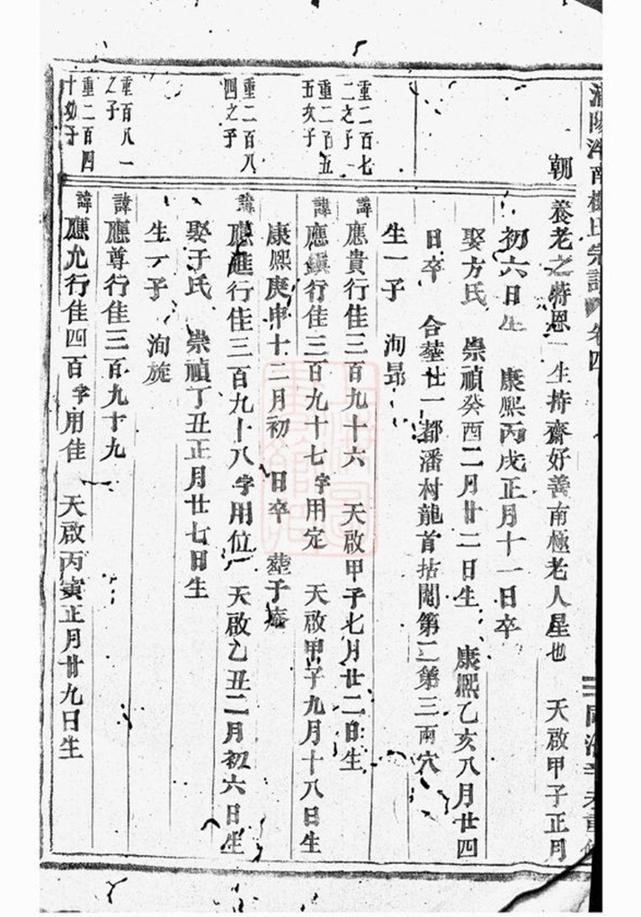 朝
養老之特恩一生持齋好善南極老人星也 天啟甲子正月
初六日生 康熙丙戌正月十一日卒
娶方氏 崇禎癸酉二月廿二日生 康熙乙亥八月廿四
日卒 合塟廿一都潘村龍首拈鬮第二第三兩穴
生一子 洵昂
重二百七
二之子
諱應貴行佳三百九十六 天啟甲子七月廿二日生
重二百五
五次子
諱應鎮行佳三百九十七字用定 天啟甲子九月十八日生
康熙庚申十二月初 日卒 塟于
重二百八
四之子
諱應進行佳三百九十八字用位 天啟乙丑二月初六日生
娶于氏 崇禎丁丑正月廿七日生
生一子 洵旋
重百八一
之子
諱應尊行佳三百九十九
重二百四
十幼子
諱應允行佳四百字用佳 天啟丙寅正月廿九日生